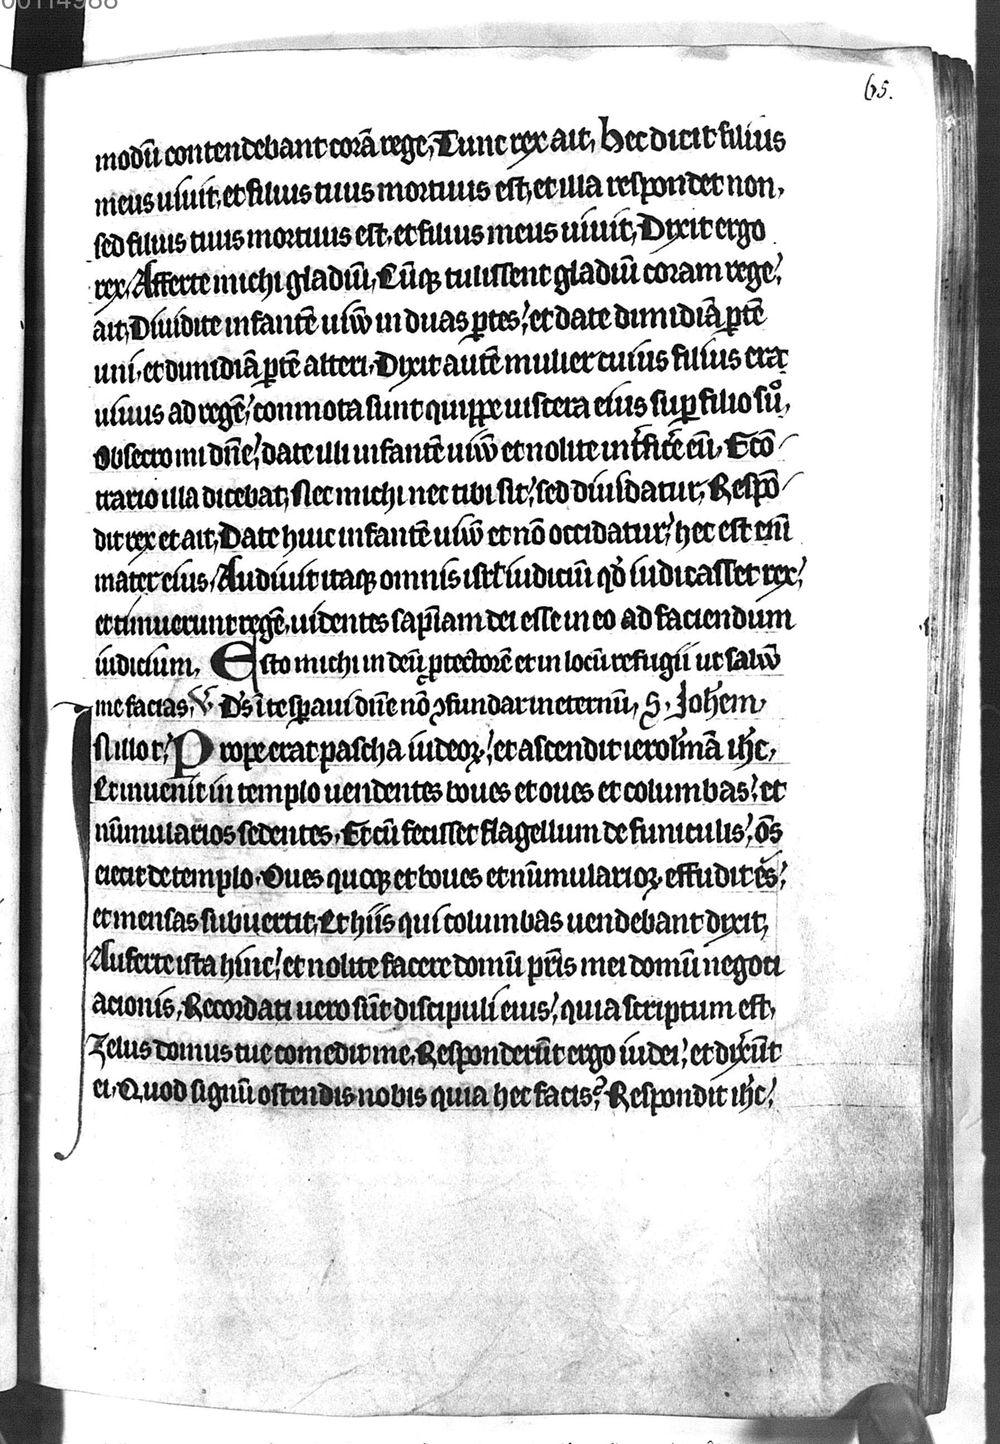 00114988
65.
modū contendebant corā rege, Tunc rex ait, Hec dicit filius
meus uiuit, et filius tuus mortuus est, et illa respondet non,
sed filius tuus mortuus est, et filius meus uiuit, Dixit ergo
rex, Afferte michi gladiū, Cūq; tulissent gladiū coram rege,
ait, Diuidite infantē uiuū in duas ꝑtes, et date dimidiā ꝑtē
uni, et dimidiā ꝑtē alteri, Dixit autē mulier cuius filius erat
uiuus ad regē, conmota sunt quippe uiscera eius suꝑ filio suo,
Obsecro mi dn̄e, date illi infantē uiuū et nolite intˀficˀe eū, Ecō
trario illa dicebat, Nec michi nec tibi sit, sed diuidatur, Respō
dit rex et ait, Date huic infantē uiuū et nō occidatur, hec est em̄
mater eius, Audiuit itaq; omnis isrl iudiciū qđ iudicasset rex,
et timuerunt regē, uidentes sapīam dei esse in eo ad faciendum
iudicium, Esto michi in deū ꝓtectorē et in locū refugii ut saluū
me facias, V Ds̄ ī te speraui dn̄e nō ↄfundar in eternū, S. Johēm
Jn illo t̄, Prope erat pascha iudeoꝝ, et ascendit ierosolīmā ih̄c,
Et inuenit in templo uendentes boues et oues et columbas, et
nūmularios sedentes, Et cū fecisset flagellum de funiculis, om̄s
eiecit de templo, Oues quoq; et boues et nūmularioꝝ effudit es,
et mensas subuertit, Et hiis qui columbas uendebant dixit,
Auferte ista hinc, et nolite facere domū pr̄is mei domū negoti
acionis, Recordati uero sūt discipuli eius, quia scriptum est,
Zelus domus tue comedit me, Responderūt ergo iudei, et dixerūt
ei, Quod signū ostendis nobis quia hec facis, Respondit ih̄c,